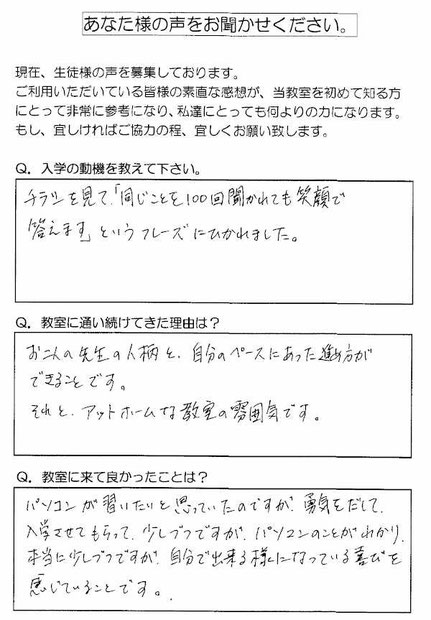 あなた様の声をお聞かせください。
現在、生徒様の声を募集しております。
ご利用いただいている皆様の素直な感想が、当教室を初めて知る方
にとって非常に参考になり、私達にとっても何よりの力になります。
もし、宜しければご協力の程、宜しくお願い致します。
Q．入学の動機を教えて下さい。
チラシを見て、「同じことを100回聞かれても笑顔で
答えます」というフレーズにひかれました。
Q．教室に通い続けてきた理由は？
お二人の先生の人柄と、自分のペースにあった進め方が
できることです。
それと、アットホームな教室の雰囲気です。
Q．教室に来て良かったことは？
パソコンが習いたいと思っていたのですが、勇気をだして、
入学させてもらって、少しづつですが、パソコンのことがわかり、
本当に少しづつですが、自分で出来る様になっている喜びを
感じていることです。